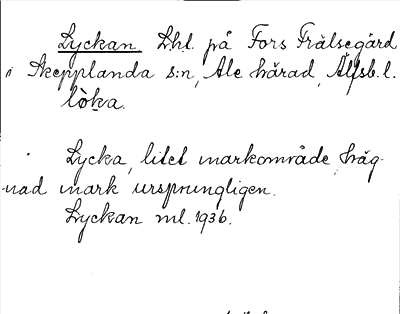 Lyckan Lht. på Fors Frälsegård
i Skepplanda s:n, Ale härad, Älfsb. l.
lòka.
Lycka, litet markområde, häg-
nad mark ursprungligen.
Lyckan ml. 1936.